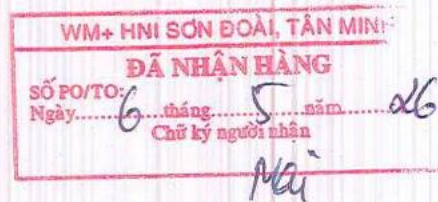 WM+ HNI SƠN ĐOÀI, TÂN MINH
ĐÃ NHẬN HÀNG
SỐ PO/TO:
Ngày......6......tháng......5......năm......26
Chữ ký người nhận
Mai